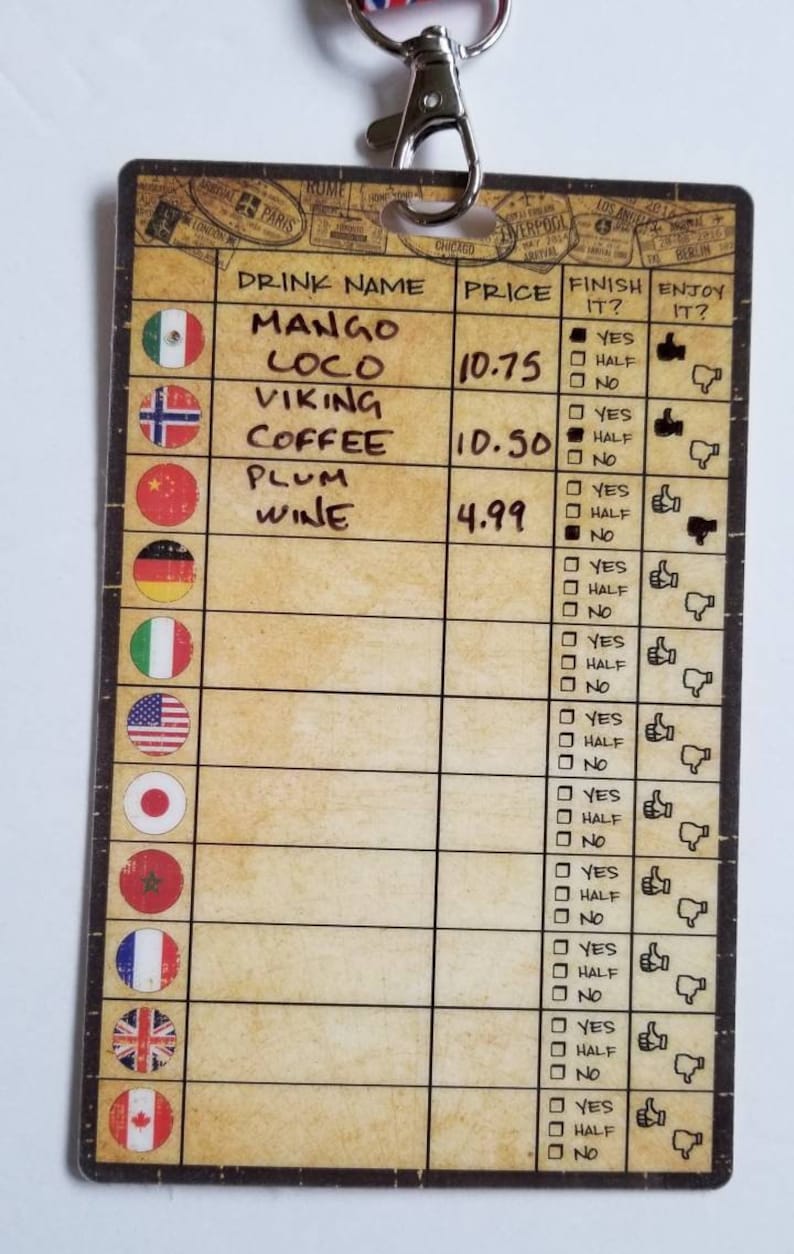 ARRIVAL
PARIS
ROME
HONG KONG
LONDON
TORONTO
CHICAGO
LIVERPOOL
ARRIVAL
LOS ANGELES
ARRIVAL
TXL BERLIN
DRINK NAME PRICE FINISH IT? ENJOY IT?
MANGO
LOCO 10.75
YES
HALF
NO
VIKING
COFFEE 10.50
YES
HALF
NO
PLUM
WINE 4.99
YES
HALF
NO
YES
HALF
NO
YES
HALF
NO
YES
HALF
NO
YES
HALF
NO
YES
HALF
NO
YES
HALF
NO
YES
HALF
NO
YES
HALF
NO